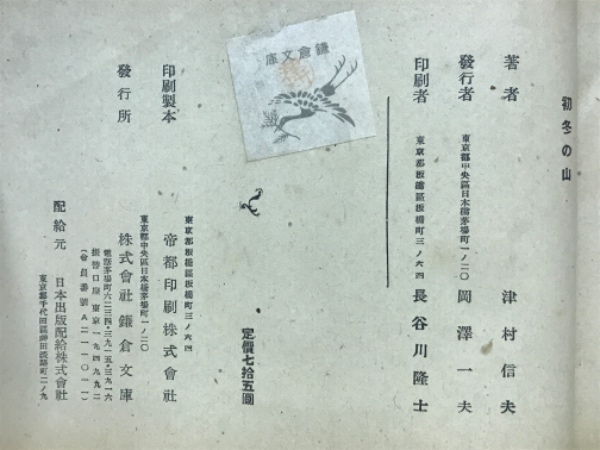 初冬の山
著者 津村信夫
發行者 東京都中央區日本橋茅場町一ノ二〇 岡澤一夫
印刷者 東京都板橋區板橋町三ノ六四 長谷川隆士
鎌倉文庫
定價七拾五圓
東京都板橋區板橋町三ノ六四
印刷製本 帝都印刷株式會社
東京都中央區日本橋茅場町一ノ二〇
發行所 株式會社鎌倉文庫
電話茅場町六二三四・三九一五・三九一六
振替口座東京一九四九九二
(會員番號A二一一〇一一)
配給元 日本出版配給株式會社
東京都千代田區神田淡路町二ノ九